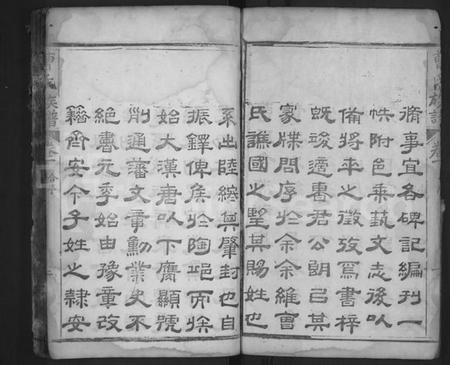 脩事宜各碑記編刊一
帙附邑乘藝文志後以
備將來之徵攷焉書梓
既竣適書君公朗㠯其
家牒問序於余余維會
氏譙國之望其賜姓也
系出陸終其肇封也自
振鐸俾矦於陶
始大漢唐以下膺顯號
削通藩文章勳業史不
絕書元季始由豫章改
籍齊安今子姓之隸安
族譜